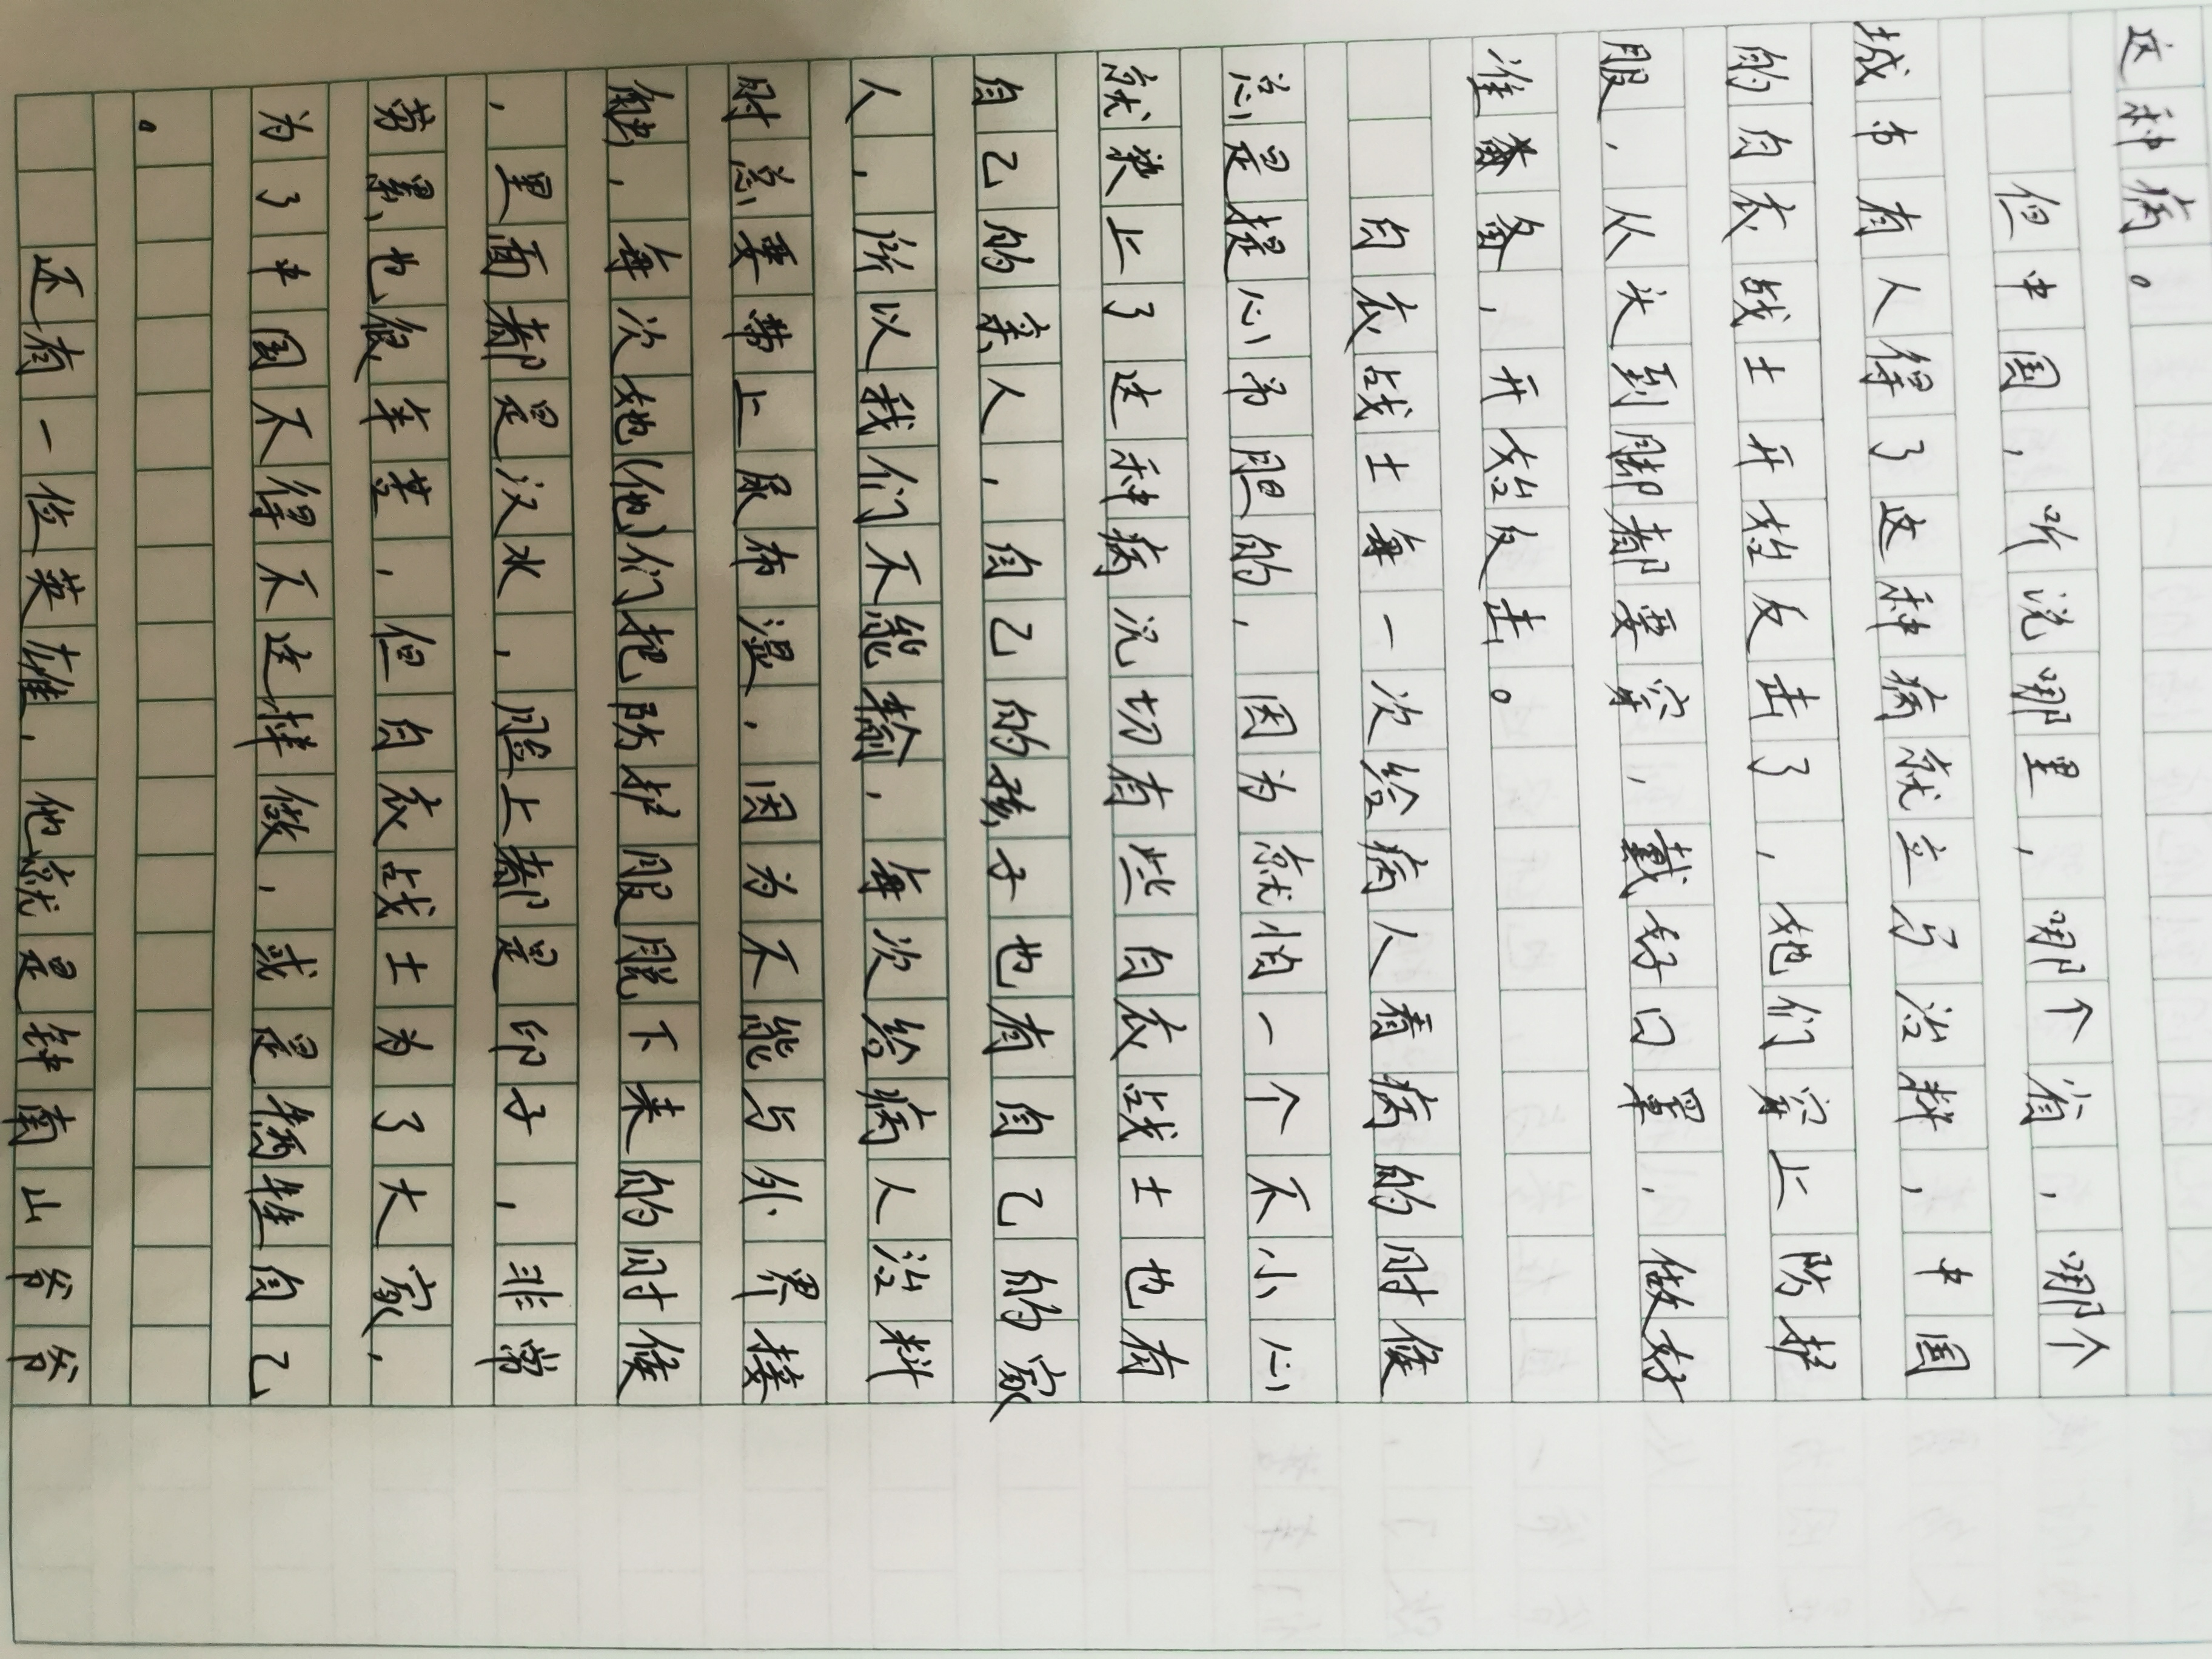 这种病。
但中国，听说哪里，哪个省，哪个
城市有人得了这种病就立马治料，中国
的白衣战士开始反击了，她们穿上防护
服，从头到脚都要穿，戴好口罩，做好
准备，开始反击。
白衣战士每一次给病人看病的时候
总是提心吊胆的，因为就怕一个不小心
就染上了这种病况切有些白衣战士也有
自己的亲人，自己的孩子也有自己的家
人，所以我们不能输，每次给病人治料
时总要带上尿布湿，因为不能与外界接
触，每次她(他)们把防护服脱下来的时候
，里面都是汉水，脸上都是印子，非常
劳累也很辛苦，但白衣战士为了大家，
为了中国不得不这样做，或是牺牲自己
。
还有一位英雄，他就是钟南山爷爷